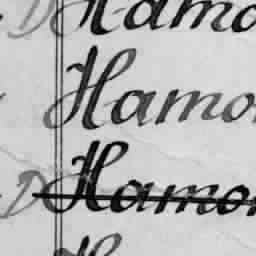 D Hamo
Hamo
D Hamo